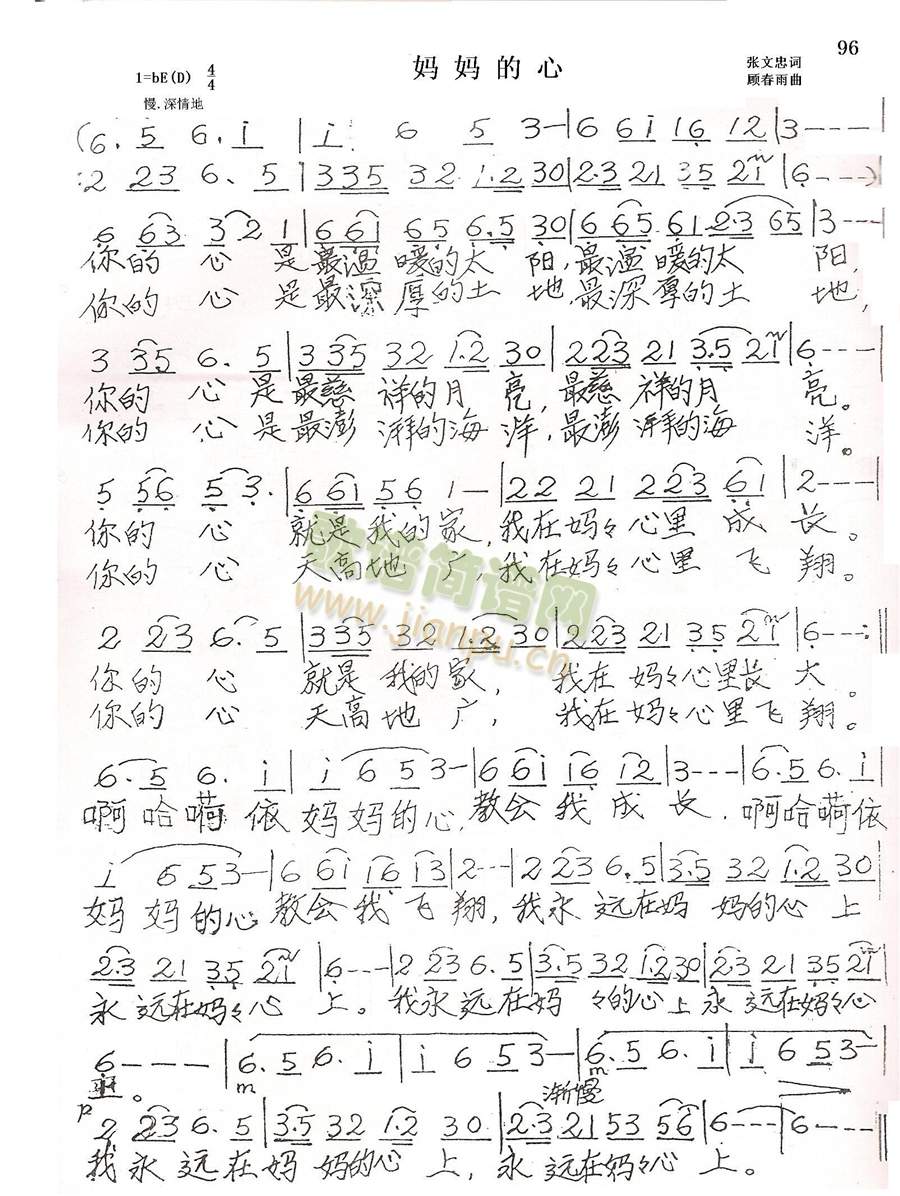 96
妈妈的心
1=bE(D) 4/4
张文忠词
顾春雨曲
慢.深情地
(6. 5 6. i | i 6 5 3— | 6 6i 16 12 | 3---- |
2 23 6. 5 | 335 32 1.2 30 | 2.3 21 35 21 | 6----) |
6 63 3 2 1 | 6 61 65 6.5 30 | 6 65 61 2.3 65 | 3---- |
你的 心 是最温 暖的太 阳,最温暖的太 阳,
你的 心 是最深 厚的土 地,最深厚的土 地,
3 35 6. 5 | 335 32 1.2 30 | 223 21 3.5 21 | 6--- |
你的 心 是最慈 祥的月 亮,最慈祥的月 亮。
你的 心 是最澎 湃的海 洋,最澎湃的海 洋。
5 56 5 3. | 6 61 56 1— | 22 21 223 61 | 2---- |
你的 心 就是我的家,我在妈々心里 成 长。
你的 心 天高地 广,我在妈々心里 飞 翔。
2 23 6. 5 | 335 32 1.2 30 | 223 21 35 21 | 6---:‖
你的 心 就是 我的家, 我在 妈々心里长 大。
你的 心 天高地 广, 我在妈々心里飞 翔。
6. 5 6. i | i 6 5 3— | 6 6i 16 12 | 3--- | 6.5 6. i |
啊哈嗬 依 妈妈的心,教会 我 成 长, 啊哈嗬依
i 6 53— | 6 6i 16 13 | 2--- | 2 23 6.5 | 3.5 32 1.2 30 |
妈 妈 的心 教会 我 飞 翔, 我永 远在妈 妈的心 上
2.3 21 3.5 21 | 6.--- | 2 23 6. 5 | 3.5 32 1.2 30 | 2.3 21 35 21 |
永 远在妈々心 上。我永远在妈 々的心上永 远在妈々心
6 - - - | 6. 5 6. i | i 6 53— | 6.5 6. i | i 6 53— |
上。 m m 渐慢
p
2 23 6. 5 | 3.5 32 1.2 30 | 2.3 21 53 56 | 6-- | 6-- ‖
我永 远在妈 妈的心 上, 永 远在妈々心 上。
财谱简谱网
www.jianpu.cn